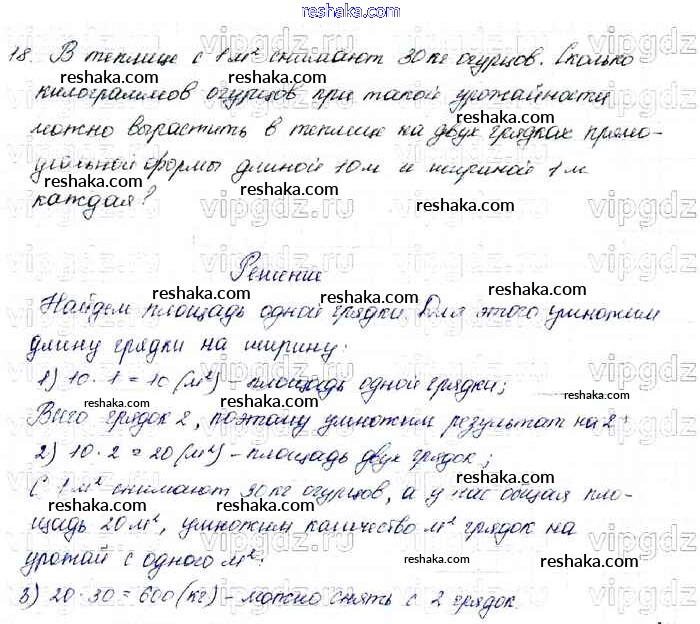 reshaka.com
18. В теплице с 1 м² снимают 30 кг огурцов. Сколько
килограммов огурцов при такой урожайности
можно вырастить в теплице на двух грядках прямо-
угольной формы длиной 10 м и шириной 1 м
каждая?
Решение
Найдем площадь одной грядки. Для этого умножим
длину грядки на ширину:
1) 10 · 1 = 10 (м²) - площадь одной грядки;
Всего грядок 2, поэтому умножим результат на 2:
2) 10 · 2 = 20 (м²) - площадь двух грядок;
С 1 м² снимают 30 кг огурцов, а у нас общая пло-
щадь 20 м², умножим количество м² грядок на
урожай с одного м²:
3) 20 · 30 = 600 (кг) - можно снять с 2 грядок.